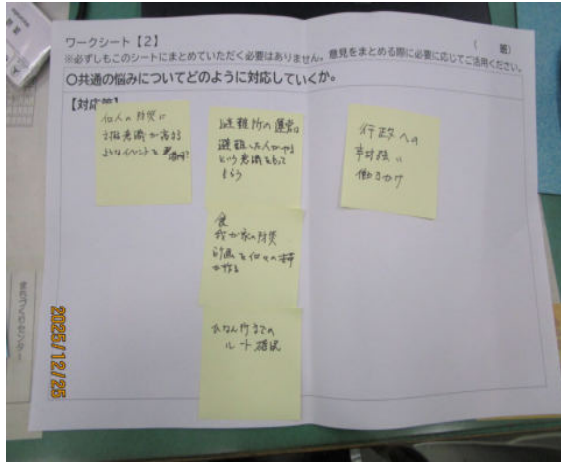 ワークシート【2】
( 班)
※必ずしもこのシートにまとめていただく必要はありません。意見をまとめる際に必要に応じてご活用ください。
〇共通の悩みについてどのように対応していくか。
【対応策】
個人の防災に
対する意識が高まる
ようなイベントを
避難所の運営は
避難した人がやる
という意識をもって
もらう
行政への
働きかけ
我が家の防災
計画を
を作る
ひなん所までの
ルート確認
まちづくりセンター
2025/12/25